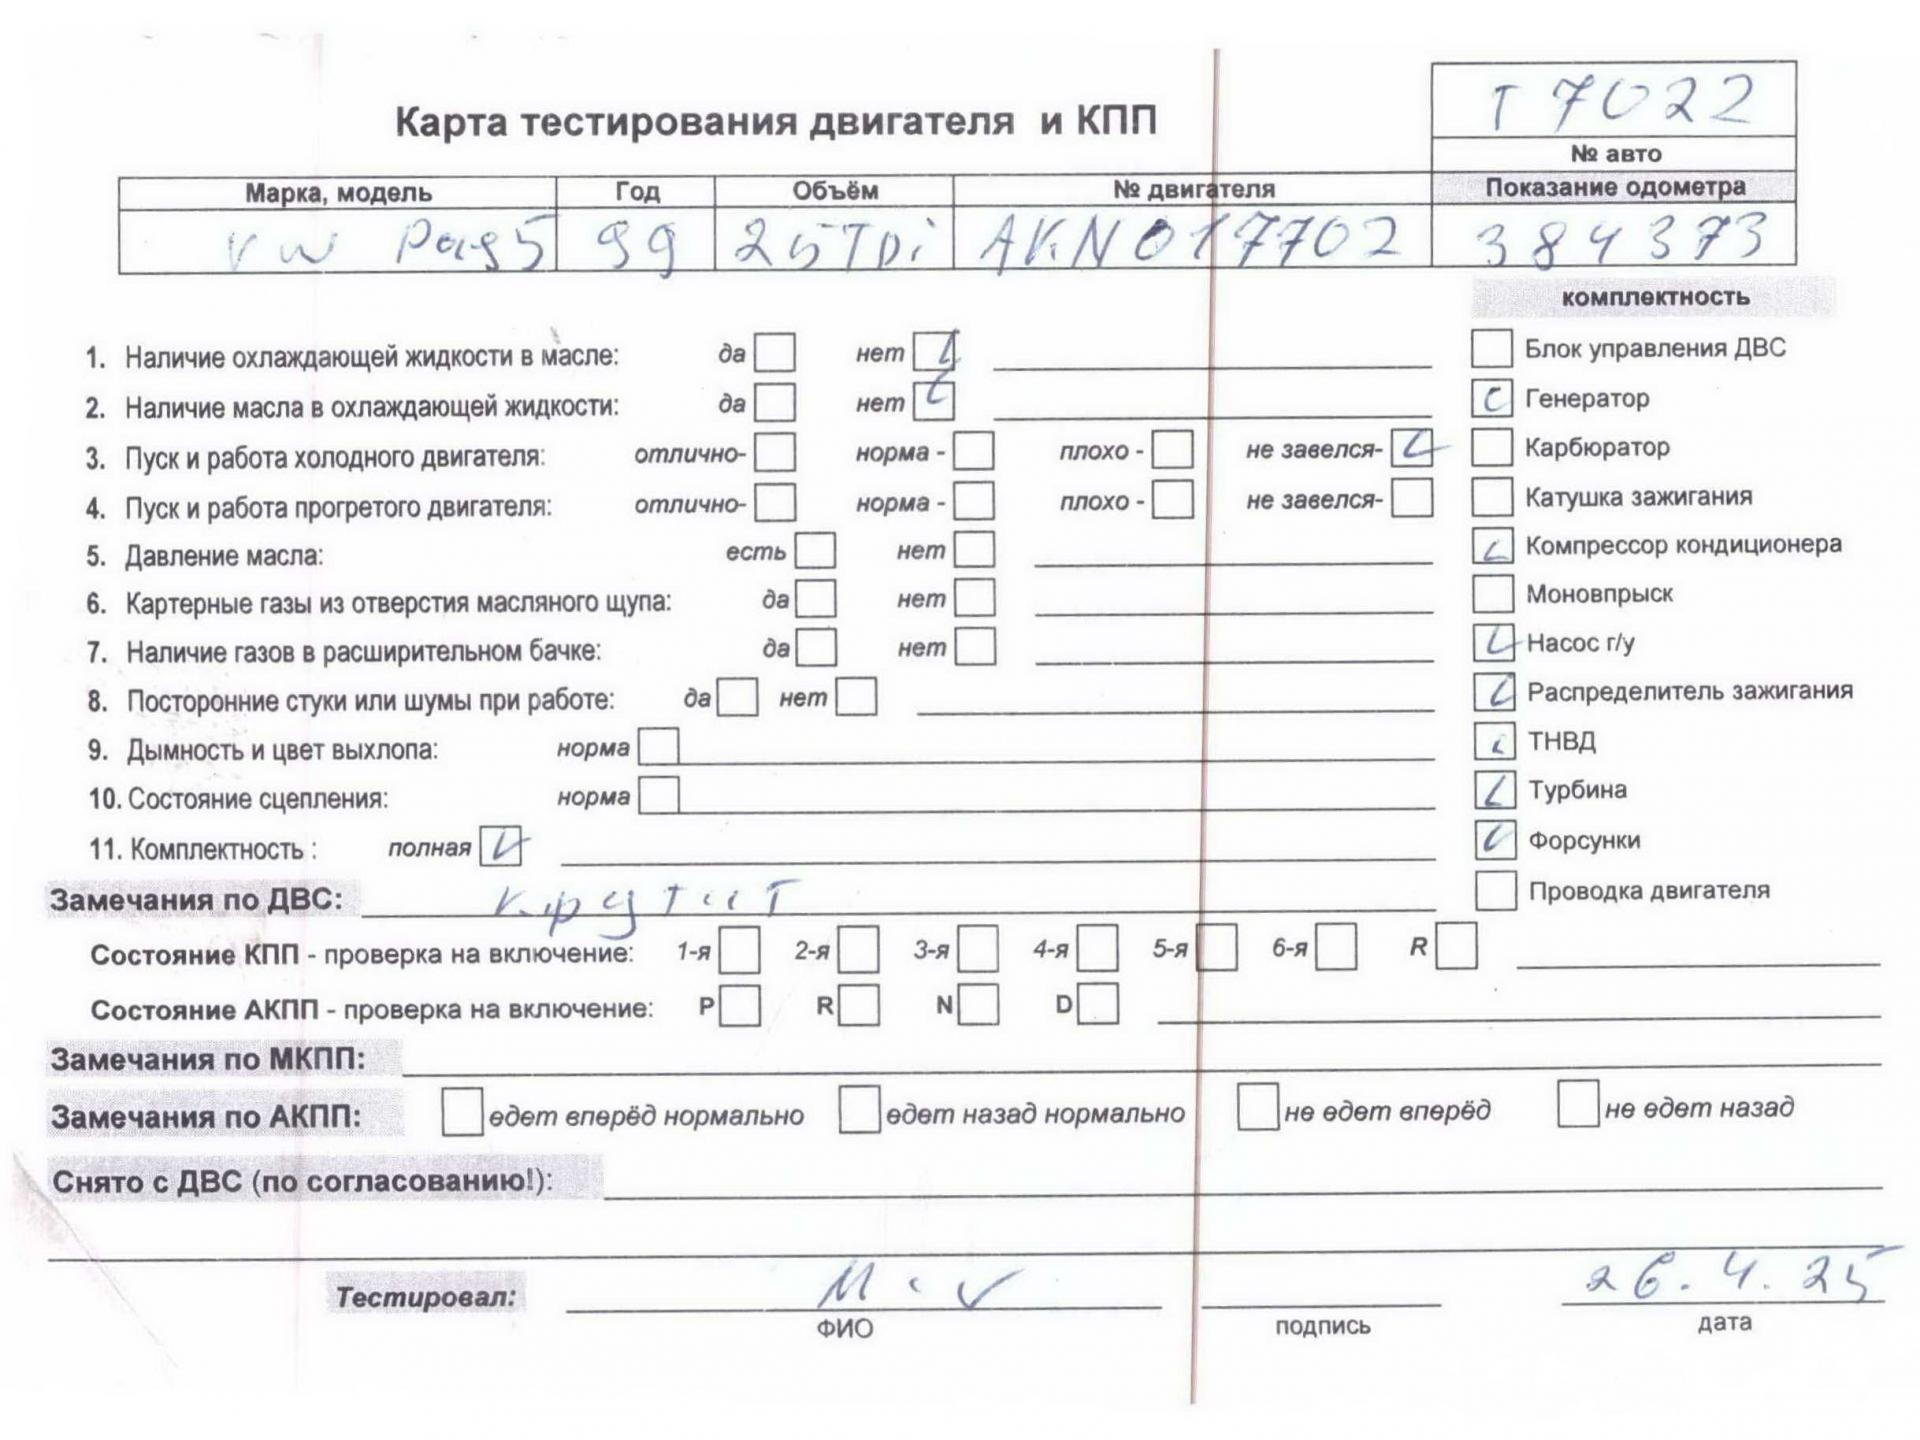 Т 7022
Карта тестирования двигателя и КПП
№ авто
Марка, модель Год Объём № двигателя Показание одометра
VW Pas5 99 25TDi AKN017702 384373
комплектность
1. Наличие охлаждающей жидкости в масле: да нет
Блок управления ДВС
2. Наличие масла в охлаждающей жидкости: да нет
Генератор
3. Пуск и работа холодного двигателя: отлично- норма - плохо - не завелся-
Карбюратор
4. Пуск и работа прогретого двигателя: отлично- норма - плохо - не завелся-
Катушка зажигания
5. Давление масла: есть нет
Компрессор кондиционера
6. Картерные газы из отверстия масляного щупа: да нет
Моновпрыск
7. Наличие газов в расширительном бачке: да нет
Насос г/у
8. Посторонние стуки или шумы при работе: да нет
Распределитель зажигания
9. Дымность и цвет выхлопа: норма
ТНВД
10. Состояние сцепления: норма
Турбина
11. Комплектность : полная
Форсунки
Замечания по ДВС: крутит
Проводка двигателя
Состояние КПП - проверка на включение: 1-я 2-я 3-я 4-я 5-я 6-я R
Состояние АКПП - проверка на включение: P R N D
Замечания по МКПП:
Замечания по АКПП: едет вперёд нормально едет назад нормально не едет вперёд не едет назад
Снято с ДВС (по согласованию!):
Тестировал: 26.4.25
ФИО подпись дата